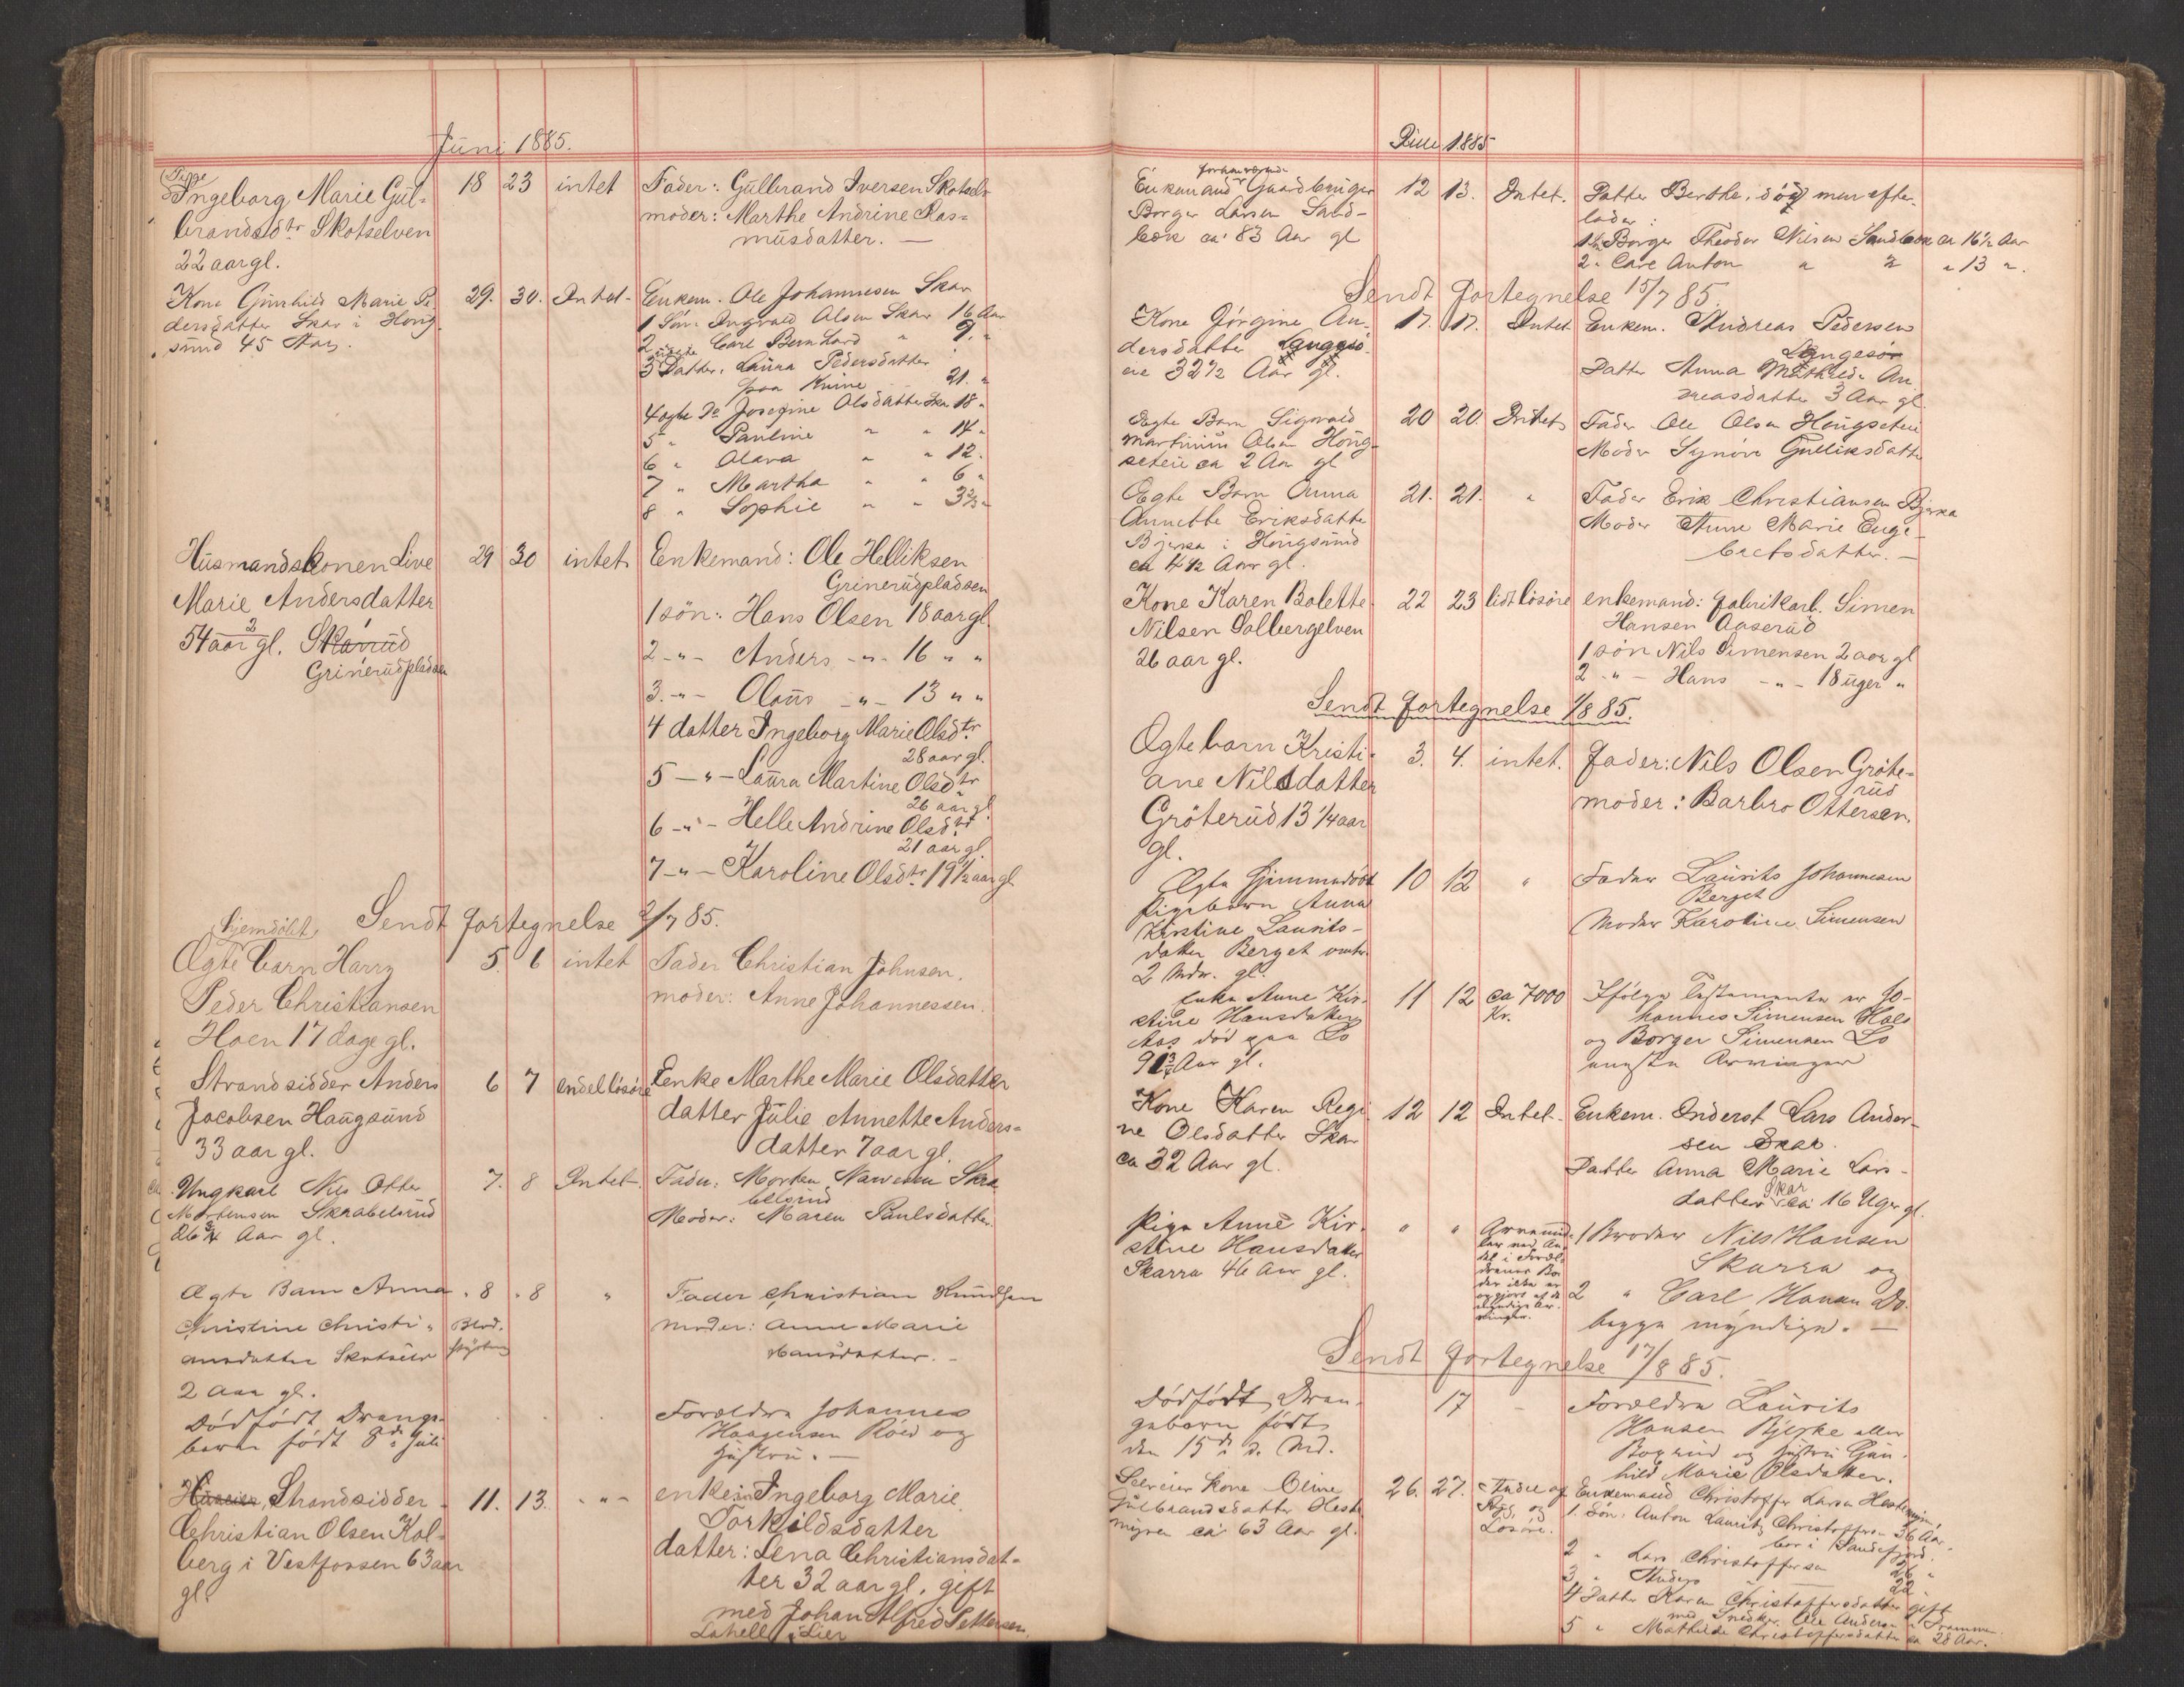 Juni 1885.
Pige
Ingeborg Marie Gul-
brandsdtr Skotselven
22 aar gl.
18 23 intet
Fader: Gulbrand Iversen Skotselv
moder: Marthe Andrine Ras-
musdatter. —
Kone Gunhild Marie Pe
dersdatter Skar i Houg
sund 45 Aar.
29. 30. Intet.
Enkem. Ole Johannesen Skar
1 Søn. Ingvald Olsen Skar 16 Aar
2 " Carl Bernhard " 9. "
uægte
3 Datter. Laura Pedersdatter
paa 21. "
4 ægte Do Josefine Olsdatter Skar 18 "
5 " Pauline " " 14 "
6 " Olava " " 12.
7 " Martha " " 6 "
8 " Sophie " " 3 2/3 "
Husmandskonen Live
Marie Andersdatter
54 aar gl. Skavrud
Grinerudpladsen
29 30 intet
Enkemand: Ole Helliksen
Grinerudpladsen
1 søn: Hans Olsen 18 aar gl.
2 -"- Anders -"- 16 " "
3. -"- Olaus -"- 13 " "
4 datter Ingeborg Marie Olsdtr
28 aar gl.
5 -"- Laura Martine Olsdtr
26 aar gl.
6 -"- Helle Andrine Olsdtr
21 aar gl.
7 -"- Karoline Olsdtr 19 1/2 aar gl
Sendt fortegnelse 2/7 85.
hjemdøbt
Ægte barn Harry
Peder Christiansen
Hoen 17 dage gl.
5. 6 intet
Fader Christian Johnsen.
moder: Anne Johannessen.
Strandsidder Anders
Jacobsen Haugsund
33 aar gl.
6 7 endel løsøre
Enke Marthe Marie Olsdatter
datter Julie Annette Anders-
datter 7 aar gl.
Ungkarl Nils Otto
Mortensen Skrabelsrud
26 3/4 Aar gl.
7. 8 Intet.
Fader: Morten Skra
belsrud
Moder: Maren Paulsdatter.
Ægte Barn Anna
Christine Christi-
ansdatter Skotselv
2 Aar gl.
8 8 "
Fader Christian Knudsen
moder: Anne Marie
Hansdatter. -
Dødfødt Drenge-
barn født 8de Juli
Forældre Johannes
Haagensen Røed og
hustru. —
Strandsidder
Christian Olsen Kol-
berg i Vestfossen 63 aar
gl.
11. 13. -"-
enke: Ingeborg Marie
Torkildsdatter
datter: Lena Christiansdat-
ter 32 aar gl. gift
med Johan Alfred Pettersen
Lahell i Lier
Juli 1885
forhenværende
Enkemand Gaardbruger
Borger Larsen Sand-
bæk ca 83 Aar gl
12 13. Intet.
Datter Berthe, død men efter-
lader:
1. Borger Theodor Nilsen Sandbæk ca 16 1/2 Aar
2 " Carl Anton " " " 13 ".
Sendt fortegnelse 15/7 85.
Kone Jørgine An-
dersdatter Langesø
ca 32 1/2 Aar gl.
17. 17. Intet
Enkem. Andreas Pedersen
Langesø
Datter Anna Mathilde An
dreasdatter 3 Aar gl.
Ægte Barn Sigvald
Martinius Olsen Houg-
seteie ca 2 Aar gl
20 20 Intet
Fader Ole Olsen Hougseteie
Moder Synøve Gulliksdatter
Ægte Barn Anna
Annette Eriksdatter
Bjerka i Hougsund
ca 4 1/2 Aar gl.
21. 21. "
Fader Erik Christiansen Bjerka
Moder Anne Marie Enge-
bretsdatter. —
Kone Karen Bolette
Nilsen Solbergelven
26 aar gl.
22 23 lidt løsøre
enkemand: fabrikarb. Simen
Hansen Aaserud
1 søn Nils Simensen 2 aar gl
2 -"- Hans -"- 18 uger "
Sendt fortegnelse 1/8 85.
Ægte barn Kristi-
ane Nilsdatter
Grøterud 13 1/4 aar
gl.
3. 4. intet.
Fader: Nils Olsen Grøte-
rud
moder: Barbro Ottersen.
Ægte hjemmedøbt
Pigebarn Anna
Kirstine Laurits-
datter Berget omtr.
2 Mdr. gl.
10 12 "
Fader Laurits Johannesen
Berget
Moder Karoline Simensen
Enke Anne Kir-
stine Hansdatter
Aas død paa Lo
91 3/4 Aar gl.
11 12 ca 7000
Kr.
Ifølge Testamente er Jo-
hannes Simensen Hals
og Borger Simensen Lo
eneste Arvinger
Kone Karen Regi
ne Olsdatter Skar
ca 32 Aar gl.
12 12 Intet.
Enkem. Inderst Lars Ander-
sen Skar.
Datter Anna Marie Lars-
datter Skar ca 16 Uger gl.
Pige Anne Kir-
stine Hansdatter
Skarra 46 Aar gl.
" "
Arvemid-
ler ved An-
del i Foræl-
drenes Bo
der ikke er
opgjort af de
myndige Ar-
vinger.
1 Broder Nils Hansen
Skarra og
2 " Carl Hansen Do.
begge myndige. —
Sendt fortegnelse 17/8 85.
Dødfødt Dren-
gebarn født
den 15de d. Md.
17 -
Forældre Laurits
Hansen Bjerke eller
og hustru Gun-
hild Marie Olsdatter.
Selveier Kone Oline
Gulbrandsdatter Heste
myren ca 63 Aar gl.
26. 27.
Andel af
og
Løsøre.
Enkemand Christoffer Larsen Hestemyren,
1. Søn. Anton Lauritz Christoffersen 36 Aar.
bor i Sandefjord.
2 " Lars Christoffersen 26 "
3 " Anders — 22
4 Datter Karen Christoffersdatter gift
med Snedker Ole Andersen Drammen
5 " Mathilde Christoffersdatter ca 28 Aar.